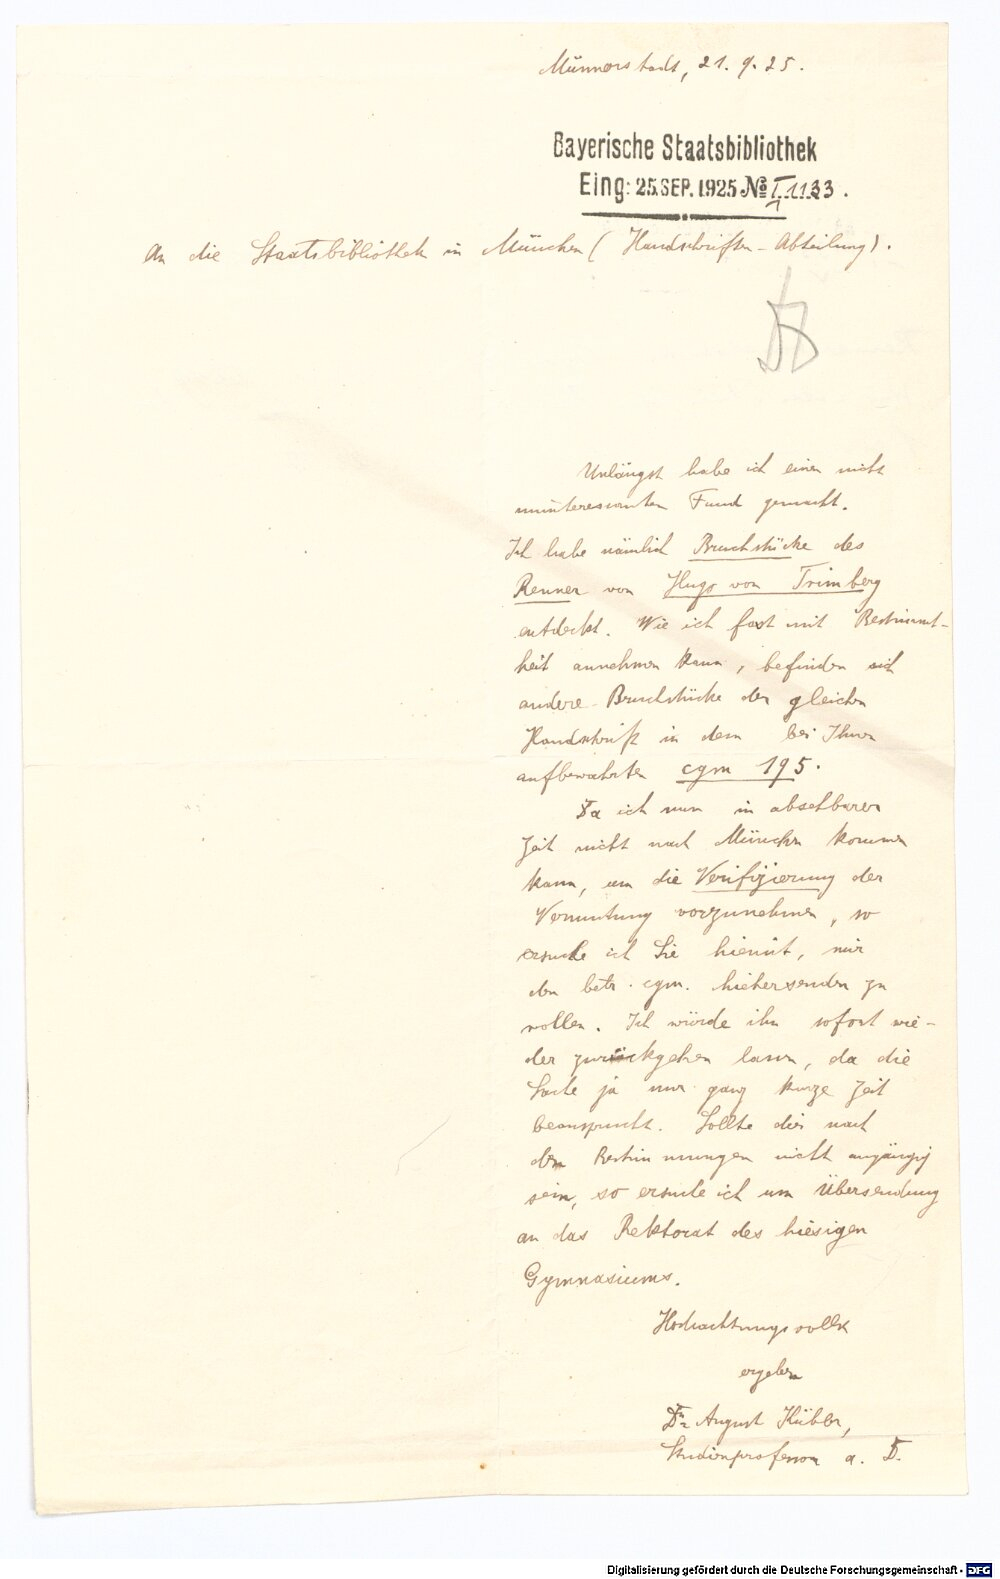 Münnerstadt, 21. 9. 25.
Bayerische Staatsbibliothek
Eing: 25.SEP. 1925 № I 1133.
An die Staatsbibliothek in München (Handschriften-Abteilung).
Unlängst habe ich einen nicht
uninteressanten Fund gemacht.
Ich habe nämlich Bruchstücke des
Renner von Hugo von Trimberg
entdeckt. Wie ich fast mit Bestimmt-
heit annehmen kann, befinden sich
andere Bruchstücke der gleichen
Handschrift in dem bei Ihnen
aufbewahrten cgm 195.
Da ich nun in absehbarer
Zeit nicht nach München kommen
kann, um die Verifizierung der
Vermutung vorzunehmen, so
ersuche ich Sie hiemit, mir
den betr. cgm. hiehersenden zu
wollen. Ich würde ihn sofort wie-
der zurückgehen lassen, da die
Sache ja nur ganz kurze Zeit
beansprucht. Sollte dies nach
den Bestimmungen nicht angängig
sein, so ersuche ich um Übersendung
an das Rektorat des hiesigen
Gymnasiums.
Hochachtungsvollst
ergeben
Dr. August Kübler,
Studienprofessor a. D.
Digitalisierung gefördert durch die Deutsche Forschungsgemeinschaft - DFG